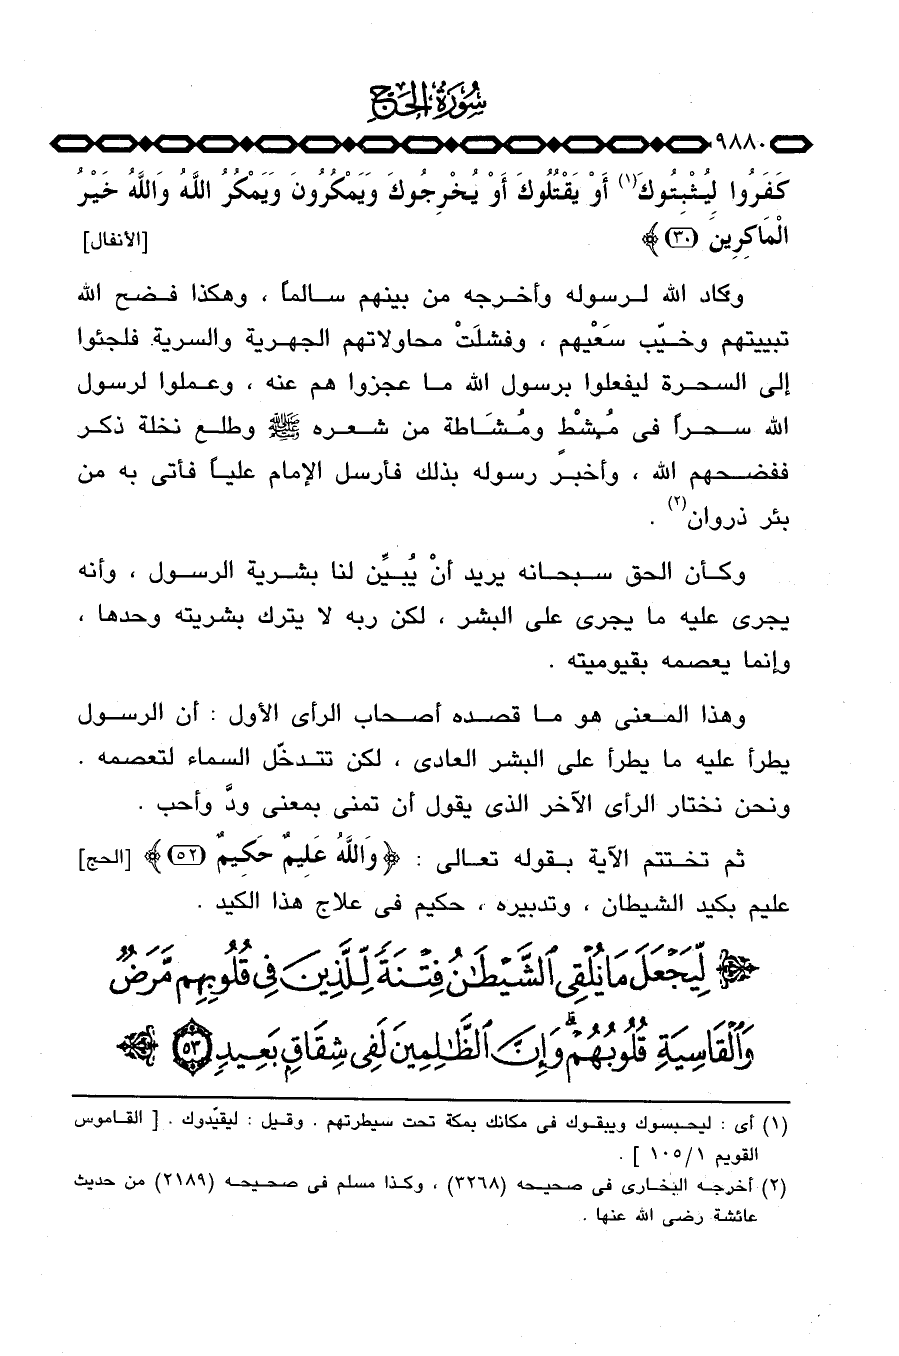 سُورَةُ الحَجِّ
٩٨٨٠
كَفَرُوا لِيُثْبِتُوكَ(١) أَوْ يَقْتُلُوكَ أَوْ يُخْرِجُوكَ وَيَمْكُرُونَ وَيَمْكُرُ اللَّهُ وَاللَّهُ خَيْرُ
الْمَاكِرِينَ (٣٠)﴾ [الأنفال]
وكاد الله لرسوله وأخرجه من بينهم سالماً ، وهكذا فضح الله
تبييتهم وخيَّب سَعْيهم ، وفشلَتْ محاولاتهم الجهرية والسرية. فلجئوا
إلى السحرة ليفعلوا برسول الله ما عجزوا هم عنه ، وعملوا لرسول
الله سحراً فى مُشْط ومُشَاطة من شعره ﷺ وطلع نخلة ذكر
ففضحهم الله ، وأخبر رسوله بذلك فأرسل الإمام علياً فأتى به من
بئر ذروان(٢) .
وكأن الحق سبحانه يريد أنْ يُبيِّن لنا بشرية الرسول ، وأنه
يجرى عليه ما يجرى على البشر ، لكن ربه لا يترك بشريته وحدها ،
وإنما يعصمه بقيوميته .
وهذا المعنى هو ما قصده أصحاب الرأى الأول : أن الرسول
يطرأ عليه ما يطرأ على البشر العادى ، لكن تتدخّل السماء لتعصمه .
ونحن نختار الرأى الآخر الذى يقول أن تمنى بمعنى ودَّ وأحب .
ثم تختتم الآية بقوله تعالى : ﴿وَاللَّهُ عَلِيمٌ حَكِيمٌ (٥٢)﴾ [الحج]
عليم بكيد الشيطان ، وتدبيره ، حكيم فى علاج هذا الكيد .
﴿ لِّيَجْعَلَ مَا يُلْقِى ٱلشَّيْطَٰنُ فِتْنَةً لِّلَّذِينَ فِى قُلُوبِهِم مَّرَضٌ
وَٱلْقَاسِيَةِ قُلُوبُهُمْ ۗ وَإِنَّ ٱلظَّٰلِمِينَ لَفِى شِقَاقٍۭ بَعِيدٍ ٥٣ ﴾
(١) أى : ليحبسوك ويبقوك فى مكانك بمكة تحت سيطرتهم . وقيل : ليقيّدوك . [ القاموس
القويم ١/ ١٠٥ ] .
(٢) أخرجه البخارى فى صحيحه (٣٢٦٨) ، وكذا مسلم فى صحيحه (٢١٨٩) من حديث
عائشة رضى الله عنها .